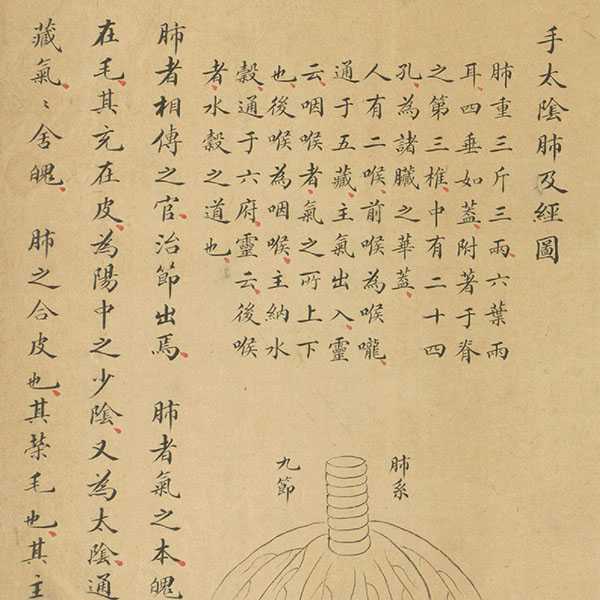 手太陰肺及經圖
肺重三斤三兩、六葉兩
耳、四垂如蓋附著于脊
之第三椎、中有二十四
孔、為諸臟之華蓋、
人有二喉、前喉為喉嚨、
通于五藏、主氣出入、靈
云咽喉者、氣之所上下
也、後喉為咽喉、主納水
穀、通于六府、靈云後喉
者、水穀之道也、
肺者相傳之官、治節出焉、 肺者氣之本魄
在毛、其充在皮、為陽中之少陰、又為太陰、通
藏氣、〻舍魄、 肺之合皮也、其榮毛也、其主
肺系
九節